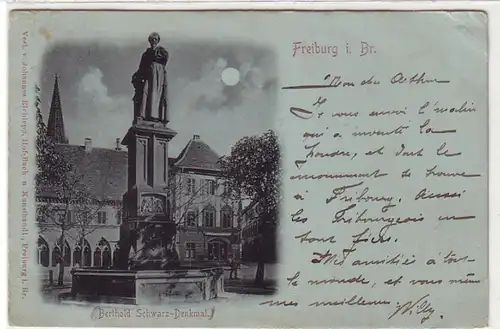 Freiburg i. Br.
Mon cher Arthur
Je vous envoi l'malin
qui a inventé la
poudre, et dont le
monument se trouve
à Fribourg. Aussi
les Fribourgeois en
sont fiers.
Mes amitiés à tout
le monde, et vous même
mes meilleures Willy
Berthold Schwarz-Denkmal.
Verl. v. Johannes Elchlepp, Hof-Buch u. Kunsthandl., Freiburg i. Br.